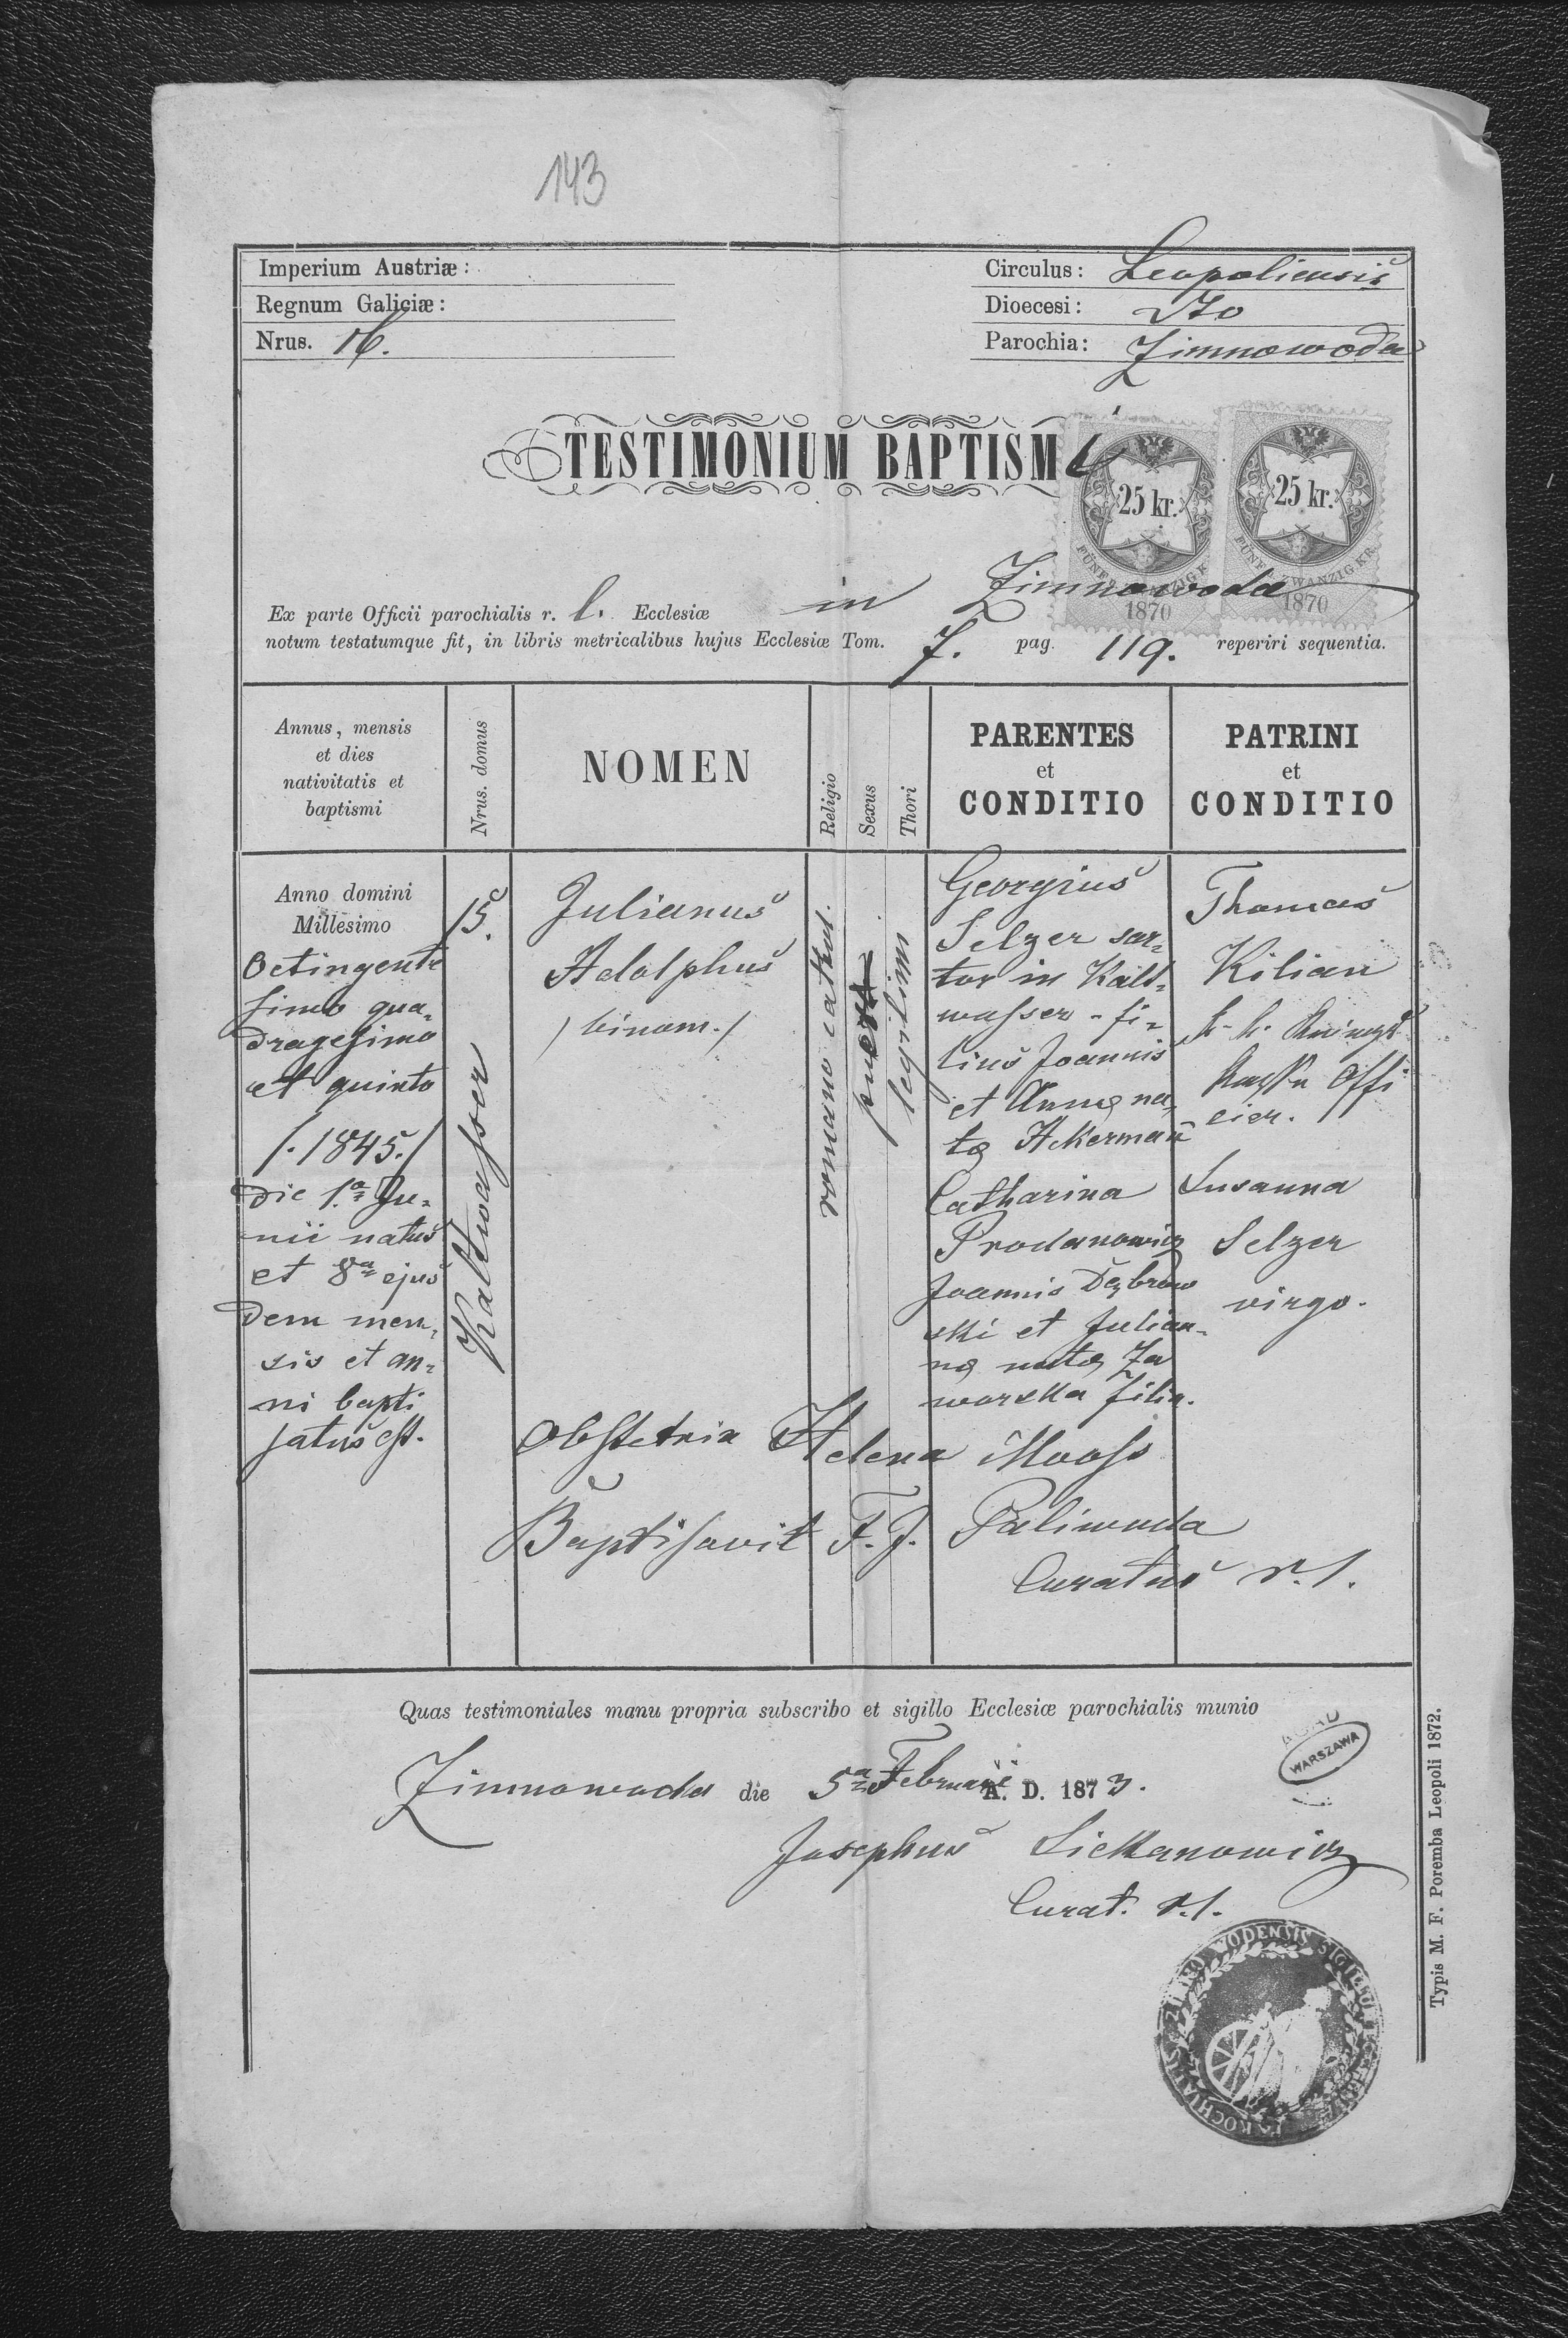 143
Imperium Austriæ:
Regnum Galiciæ:
Nrus. 16.
Circulus: Leopoliensis
Dioecesi: dto
Parochia: Zimnowoda
TESTIMONIUM BAPTISMI
25 kr. 25 kr.
FÜNF ZWANZIG KR.
1870 1870
Ex parte Officii parochialis r. l. Ecclesiæ in Zimnowoda
notum testatumque fit, in libris metricalibus hujus Ecclesiæ Tom. 7. pag. 119. reperiri sequentia.
Annus, mensis
et dies
nativitatis et
baptismi
Nrus. domus
NOMEN
Religio
Sexus
Thori
PARENTES
et
CONDITIO
PATRINI
et
CONDITIO
Anno domini
Millesimo
Octingente
simo qua-
dragesimo
et quinto
/.1845./
die 1.a Ju-
nii natus
et 8a ejus
dem men-
sis et an-
ni bapti
satus est.
15.
Kaltwasser
Julianus
Adolphus
/binom./
romano cathol.
puer
legitimi
Georgius
Selzer sar-
tor in Kalt-
wasser - fi-
lius Joannis
et Annæ na-
tæ Ackermañ
Catharina
Prodanowicz
Joannis Dębrow
ski et Julian-
næ natæ Za
worska filia.
Thomas
Kilian
k. k.
Offi
cier.
Susanna
Selzer
virgo.
Obstetrix Helena Mooss
Baptisavit F. J. Paliwoda
Curatus r. l.
Quas testimoniales manu propria subscribo et sigillo Ecclesiæ parochialis munio
Zimnowoda die 5a Februarii A. D. 1873.
AGAD
WARSZAWA
Josephus Sickanowicz
Curat. r. l.
Typis M. F. Poremba Leopoli 1872.